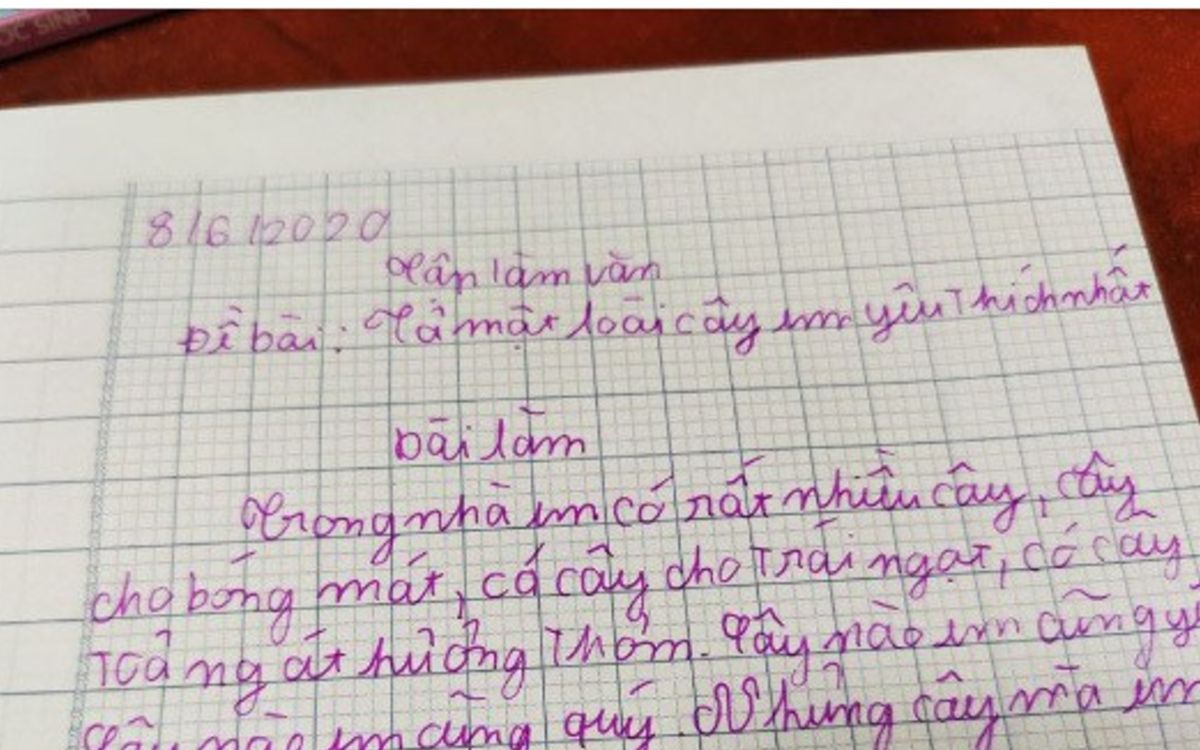 ỌC SINH
8/6/2020
Tập làm văn
Đề bài: Tả một loài cây em yêu thích nhất
Bài làm
Trong nhà em có rất nhiều cây, cây
cho bóng mát, có cây cho trái ngọt, có cây
toả ngát hương thơm. Cây nào em cũng yê
Cây nào em cũng quý. Nhưng cây mà em